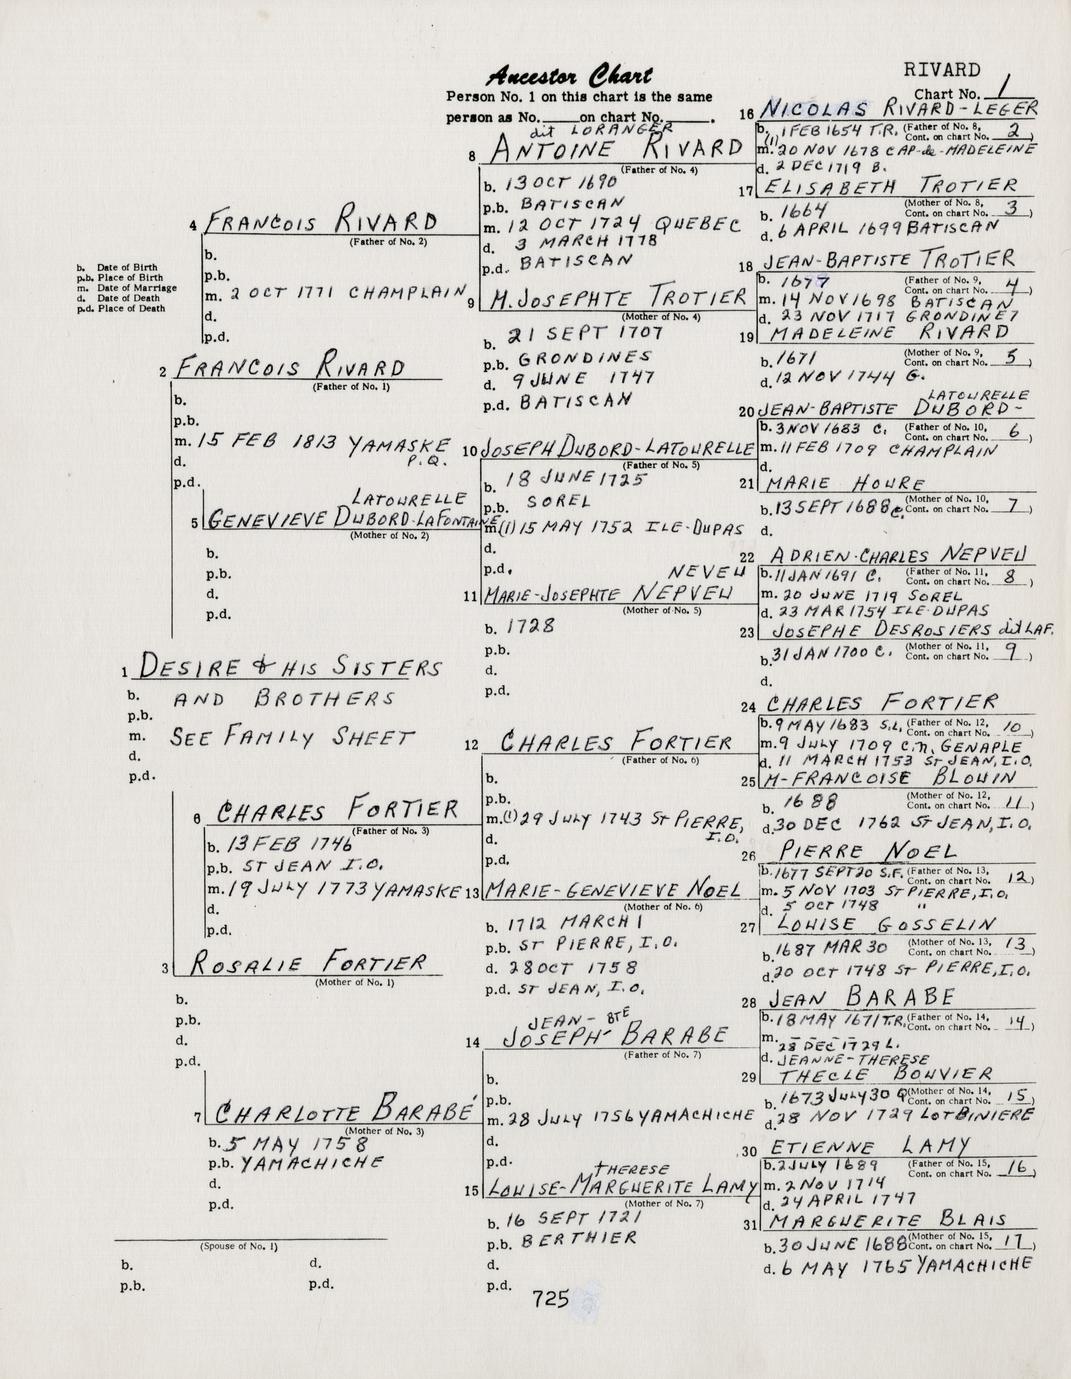 RIVARD
Ancestor Chart
Chart No. 1
Person No. 1 on this chart is the same
person as No.____on chart No.____.
b. Date of Birth
p.b. Place of Birth
m. Date of Marriage
d. Date of Death
p.d. Place of Death
1 DESIRE & HIS SISTERS
b. AND BROTHERS
p.b.
m. SEE FAMILY SHEET
d.
p.d.
2 FRANCOIS RIVARD
(Father of No. 1)
b.
p.b.
m. 15 FEB 1813 YAMASKE
P.Q.
d.
p.d.
3 ROSALIE FORTIER
(Mother of No. 1)
b.
p.b.
d.
p.d.
(Spouse of No. 1)
b.
d.
p.b.
p.d.
4 FRANCOIS RIVARD
(Father of No. 2)
b.
p.b.
m. 2 OCT 1771 CHAMPLAIN
d.
p.d.
LATOURELLE
5 GENEVIEVE DUBORD-LAFONTAINE
(Mother of No. 2)
b.
p.b.
d.
p.d.
6 CHARLES FORTIER
(Father of No. 3)
b. 13 FEB 1746
p.b. ST JEAN I.O.
m. 19 JULY 1773 YAMASKE
d.
p.d.
7 CHARLOTTE BARABÉ
(Mother of No. 3)
b. 5 MAY 1758
p.b. YAMACHICHE
d.
p.d.
dit LORANGER
8 ANTOINE RIVARD
(Father of No. 4)
b. 13 OCT 1690
p.b. BATISCAN
m. 12 OCT 1724 QUEBEC
d. 3 MARCH 1778
p.d. BATISCAN
9 M. JOSEPHTE TROTIER
(Mother of No. 4)
b. 21 SEPT 1707
p.b. GRONDINES
d. 9 JUNE 1747
p.d. BATISCAN
10 JOSEPH DUBORD-LATOURELLE
(Father of No. 5)
b. 18 JUNE 1725
p.b. SOREL
m.(1) 15 MAY 1752 ILE-DUPAS
d.
p.d.
NEVEU
11 MARIE-JOSEPHTE NEPVEU
(Mother of No. 5)
b. 1728
p.b.
d.
p.d.
12 CHARLES FORTIER
(Father of No. 6)
b.
p.b.
m.(1) 29 JULY 1743 ST PIERRE,
I.O.
d.
p.d.
13 MARIE-GENEVIEVE NOEL
(Mother of No. 6)
b. 1712 MARCH 1
p.b. ST PIERRE, I.O.
d. 28 OCT 1758
p.d. ST JEAN, I.O.
JEAN-BTE
14 JOSEPH BARABE
(Father of No. 7)
b.
p.b.
m. 28 JULY 1756 YAMACHICHE
d.
p.d.
THERESE
15 LOUISE-MARGUERITE LAMY
(Mother of No. 7)
b. 16 SEPT 1721
p.b. BERTHIER
d.
p.d.
16 NICOLAS RIVARD-LEGER
b. 1 FEB 1654 T.R. (Father of No. 8,
Cont. on chart No. 2)
(1)
m. 20 NOV 1678 CAP-de-MADELEINE
d. 2 DEC 1719 B.
17 ELISABETH TROTIER
b. 1664 (Mother of No. 8,
Cont. on chart No. 3)
d. 6 APRIL 1699 BATISCAN
18 JEAN-BAPTISTE TROTIER
b. 1677 (Father of No. 9,
Cont. on chart No. 4)
m. 14 NOV 1698 BATISCAN
d. 23 NOV 1717 GRONDINE?
19 MADELEINE RIVARD
b. 1671 (Mother of No. 9,
Cont. on chart No. 5)
d. 12 NOV 1744 G.
LATOURELLE
20 JEAN-BAPTISTE DUBORD-
b. 3 NOV 1683 C. (Father of No. 10,
Cont. on chart No. 6)
m. 11 FEB 1709 CHAMPLAIN
d.
21 MARIE HOURE
b. 13 SEPT 1688 C. (Mother of No. 10,
Cont. on chart No. 7)
d.
22 ADRIEN-CHARLES NEPVEU
b. 11 JAN 1691 C. (Father of No. 11,
Cont. on chart No. 8)
m. 20 JUNE 1719 SOREL
d. 23 MAR 1754 ILE-DUPAS
23 JOSEPHE DESROSIERS dit LAF.
b. 31 JAN 1700 C. (Mother of No. 11,
Cont. on chart No. 9)
d.
24 CHARLES FORTIER
b. 9 MAY 1683 S.L. (Father of No. 12,
Cont. on chart No. 10)
m. 9 JULY 1709 C.N. GENAPLE
d. 11 MARCH 1753 ST JEAN, I.O.
25 M-FRANCOISE BLOUIN
b. 1688 (Mother of No. 12,
Cont. on chart No. 11)
d. 30 DEC 1762 ST JEAN, I.O.
26 PIERRE NOEL
b. 1677 SEPT 20 S.F. (Father of No. 13,
Cont. on chart No. 12)
m. 5 NOV 1703 ST PIERRE, I.O.
d. 5 OCT 1748 "
27 LOUISE GOSSELIN
b. 1687 MAR 30 (Mother of No. 13,
Cont. on chart No. 13)
d. 20 OCT 1748 ST PIERRE, I.O.
28 JEAN BARABE
b. 18 MAY 1671 T.R. (Father of No. 14,
Cont. on chart No. 14)
m.
28 DEC 1729 L.
d. JEANNE-THERESE
29 THECLE BOUVIER
b. 1673 JULY 30 Q (Mother of No. 14,
Cont. on chart No. 15)
d. 28 NOV 1729 LOTBINIERE
30 ETIENNE LAMY
b. 2 JULY 1689 (Father of No. 15,
Cont. on chart No. 16)
m. 2 NOV 1714
d. 24 APRIL 1747
31 MARGUERITE BLAIS
b. 30 JUNE 1688 (Mother of No. 15,
Cont. on chart No. 17)
d. 6 MAY 1765 YAMACHICHE
725